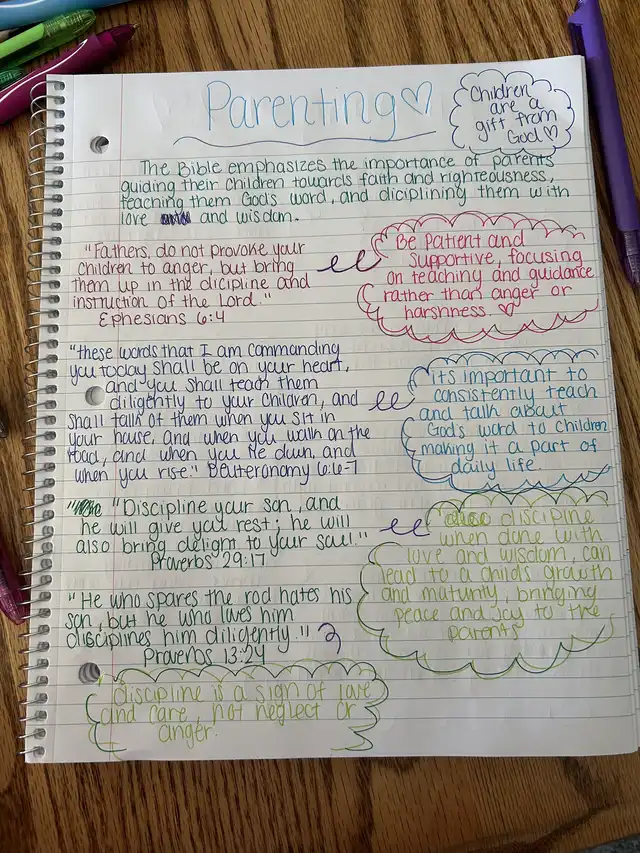 Parenting ♡
Children
are a
gift from
God ♡
The Bible emphasizes the importance of parents
guiding their children towards faith and righteousness,
teaching them God's word, and diciplining them with
love and wisdom.
"Fathers, do not provoke your
children to anger, but bring
them up in the dicipline and
instruction of the Lord."
Ephesians 6:4
Be patient and
supportive, focusing
on teaching and guidance
rather than anger or
harshness. ♡
"these words that I am commanding
you today shall be on your heart,
and you shall teach them
diligently to your children, and
shall talk of them when you sit in
your house, and when you walk on the
road, and when you lie down, and
when you rise." Deuteronomy 6:6-7
its important to
consistently teach
and talk about
God's word to children
making it a part of
daily life.
"Discipline your son, and
he will give you rest; he will
also bring delight to your soul."
Proverbs 29:17
discipline
when done with
love and wisdom, can
lead to a childs growth
and maturity, bringing
peace and joy to the
parents
"He who spares the rod hates his
son, but he who loves him
disciplines him diligently."
Proverbs 13:24
discipline is a sign of love
and care, not neglect or
anger.